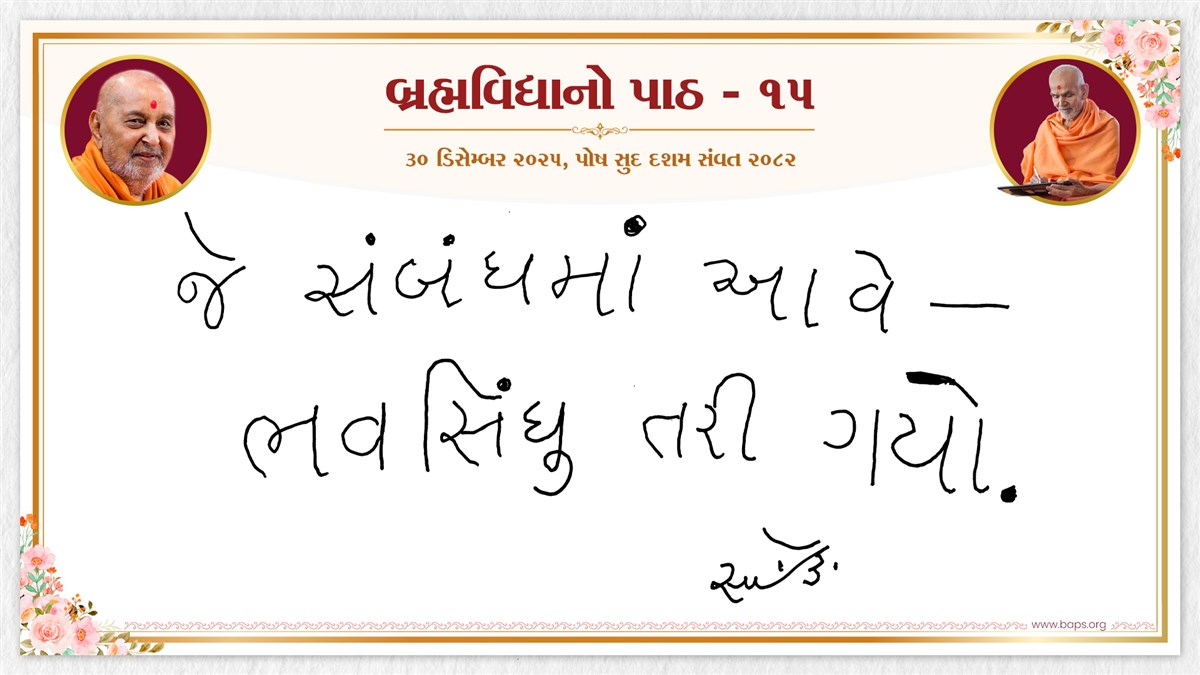 બ્રહ્મવિદ્યાનો પાઠ - ૧૫
૩૦ ડિસેમ્બર ૨૦૨૫, પોષ સુદ દશમ સંવત ૨૦૮૨
જે સંબંધમાં આવે —
ભવસિંધુ તરી ગયો.
www.baps.org